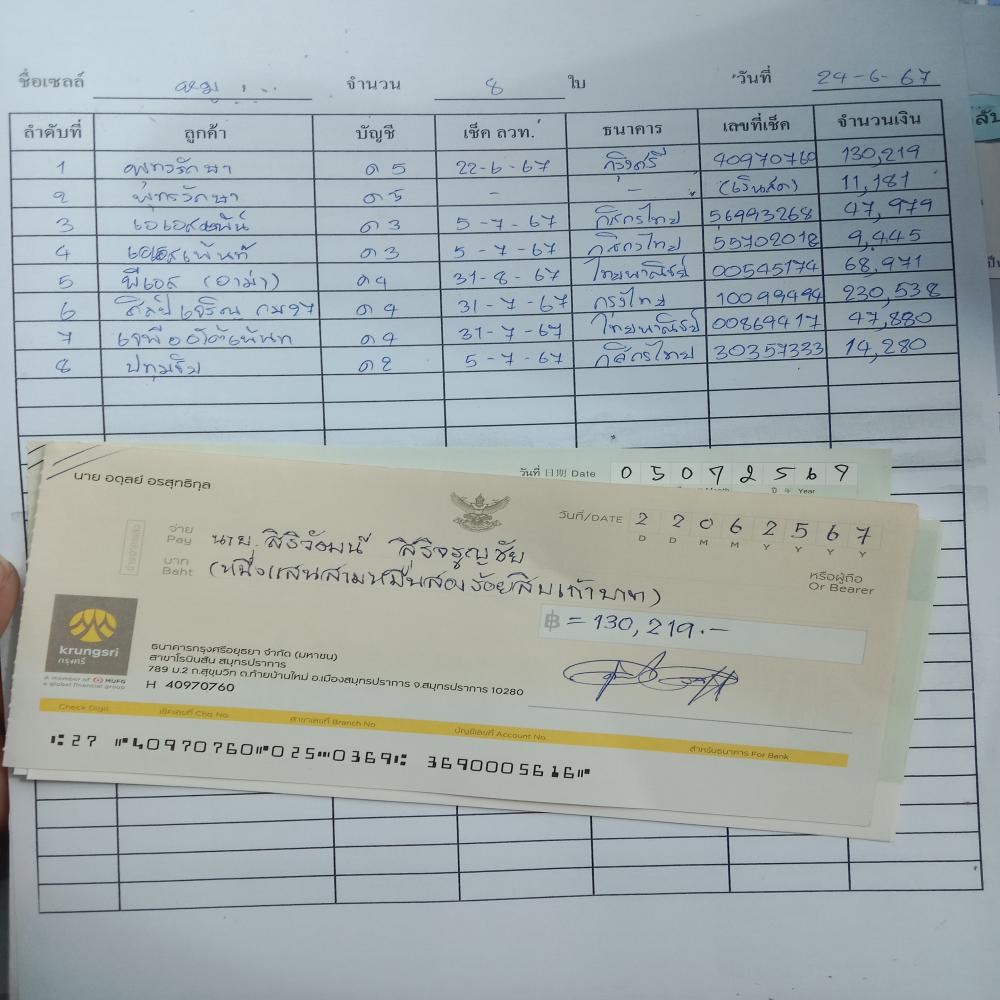 ชื่อเซลล์ หมู จำนวน 8 ใบ วันที่ 24-6-67
ลำดับที่ ลูกค้า บัญชี เช็ค ลวท. ธนาคาร เลขที่เช็ค จำนวนเงิน
1 พุทธรักษา ด5 22-6-67 กรุงศรี 40970760 130,219
2 พุทธรักษา ด5 - - (เงินสด) 11,181
3 เอเอสเพ้นท์ ด3 5-7-67 กสิกรไทย 56993268 47,979
4 เอเอสเพ้นท์ ด3 5-7-67 กสิกรไทย 55702018 9,445
5 พีเอส (อาม่า) ด4 31-8-67 ไทยพาณิชย์ 00545174 68,971
6 ศิลป์เจริญ กม27 ด4 31-7-67 กรุงไทย 10099494 230,538
7 ด4 31-7-67 ไทยพาณิชย์ 00869417 47,880
8 ปทุมธิป ด2 5-7-67 กสิกรไทย 30357333 14,280
วันที่ 日期 Date 0 5 0 7 2 5 6 7
Month ปี 年 Year
นาย อดุลย์ อรสุทธิกุล
วันที่/DATE 2 2 0 6 2 5 6 7
D D M M Y Y Y Y
จ่าย
Pay นาย สิริวัฒน์ สิริจรูญชัย
หรือผู้ถือ
Or Bearer
บาท
Baht (หนึ่งแสนสามหมื่นสองร้อยสิบเก้าบาท)
฿ =130,219.-
krungsri
กรุงศรี
A member of MUFG
a global financial group
ธนาคารกรุงศรีอยุธยา จำกัด (มหาชน)
สาขาโรบินสัน สมุทรปราการ
789 ม.2 ถ.สุขุมวิท ต.ท้ายบ้านใหม่ อ.เมืองสมุทรปราการ จ.สมุทรปราการ 10280
H 40970760
Check Digit เช็คเลขที่ Chq. No. สาขาเลขที่ Branch No. บัญชีเลขที่ Account No. สำหรับธนาคาร For Bank
⑆27 ⑈40970760⑈025⑉0369⑆ 3690005616⑈